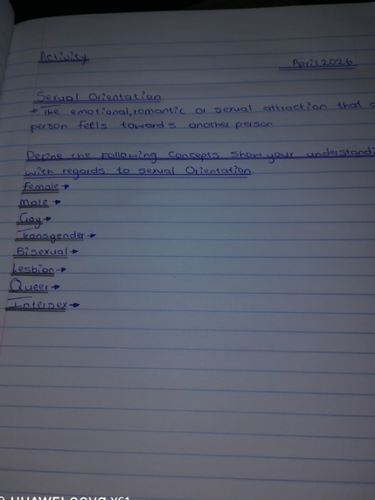 Activity
April 2026
Sexual Orientation
→ the emotional, romantic or sexual attraction that a
person fells towards another person
Define the Following Concepts show your understandi
with regards to sexual Orientation
Female →
Male →
Gay →
Transgender →
Bisexual →
Lesbian →
Queer →
Intersex →
HUAWEI nova Y61